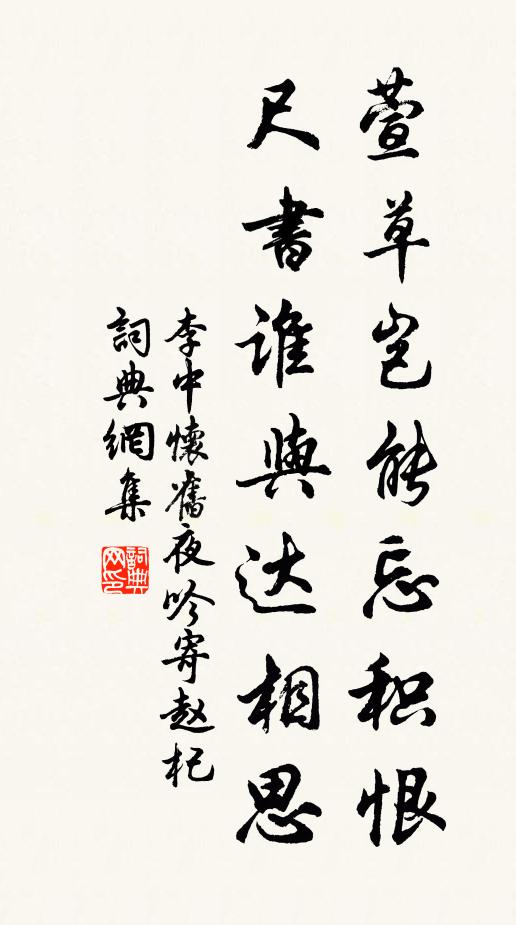 萱草岂能忘积恨
尺書谁與达相思
李中懷舊夜吟寄赵杞
詞典網集
詞典网印